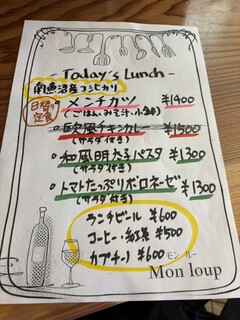 - Today's Lunch -
南魚沼産コシヒカリ
日替り定食
メンチカツ ¥1400
(ごはん、みそ汁、小鉢)
欧風チキンカレー ¥1500
(サラダ付き)
和風明太子パスタ ¥1300
(サラダ付き)
トマトたっぷりボロネーゼ ¥1300
(サラダ付き)
ランチビール ¥600
コーヒー・紅茶 ¥500
カプチーノ ¥600
モン ルー
Mon loup